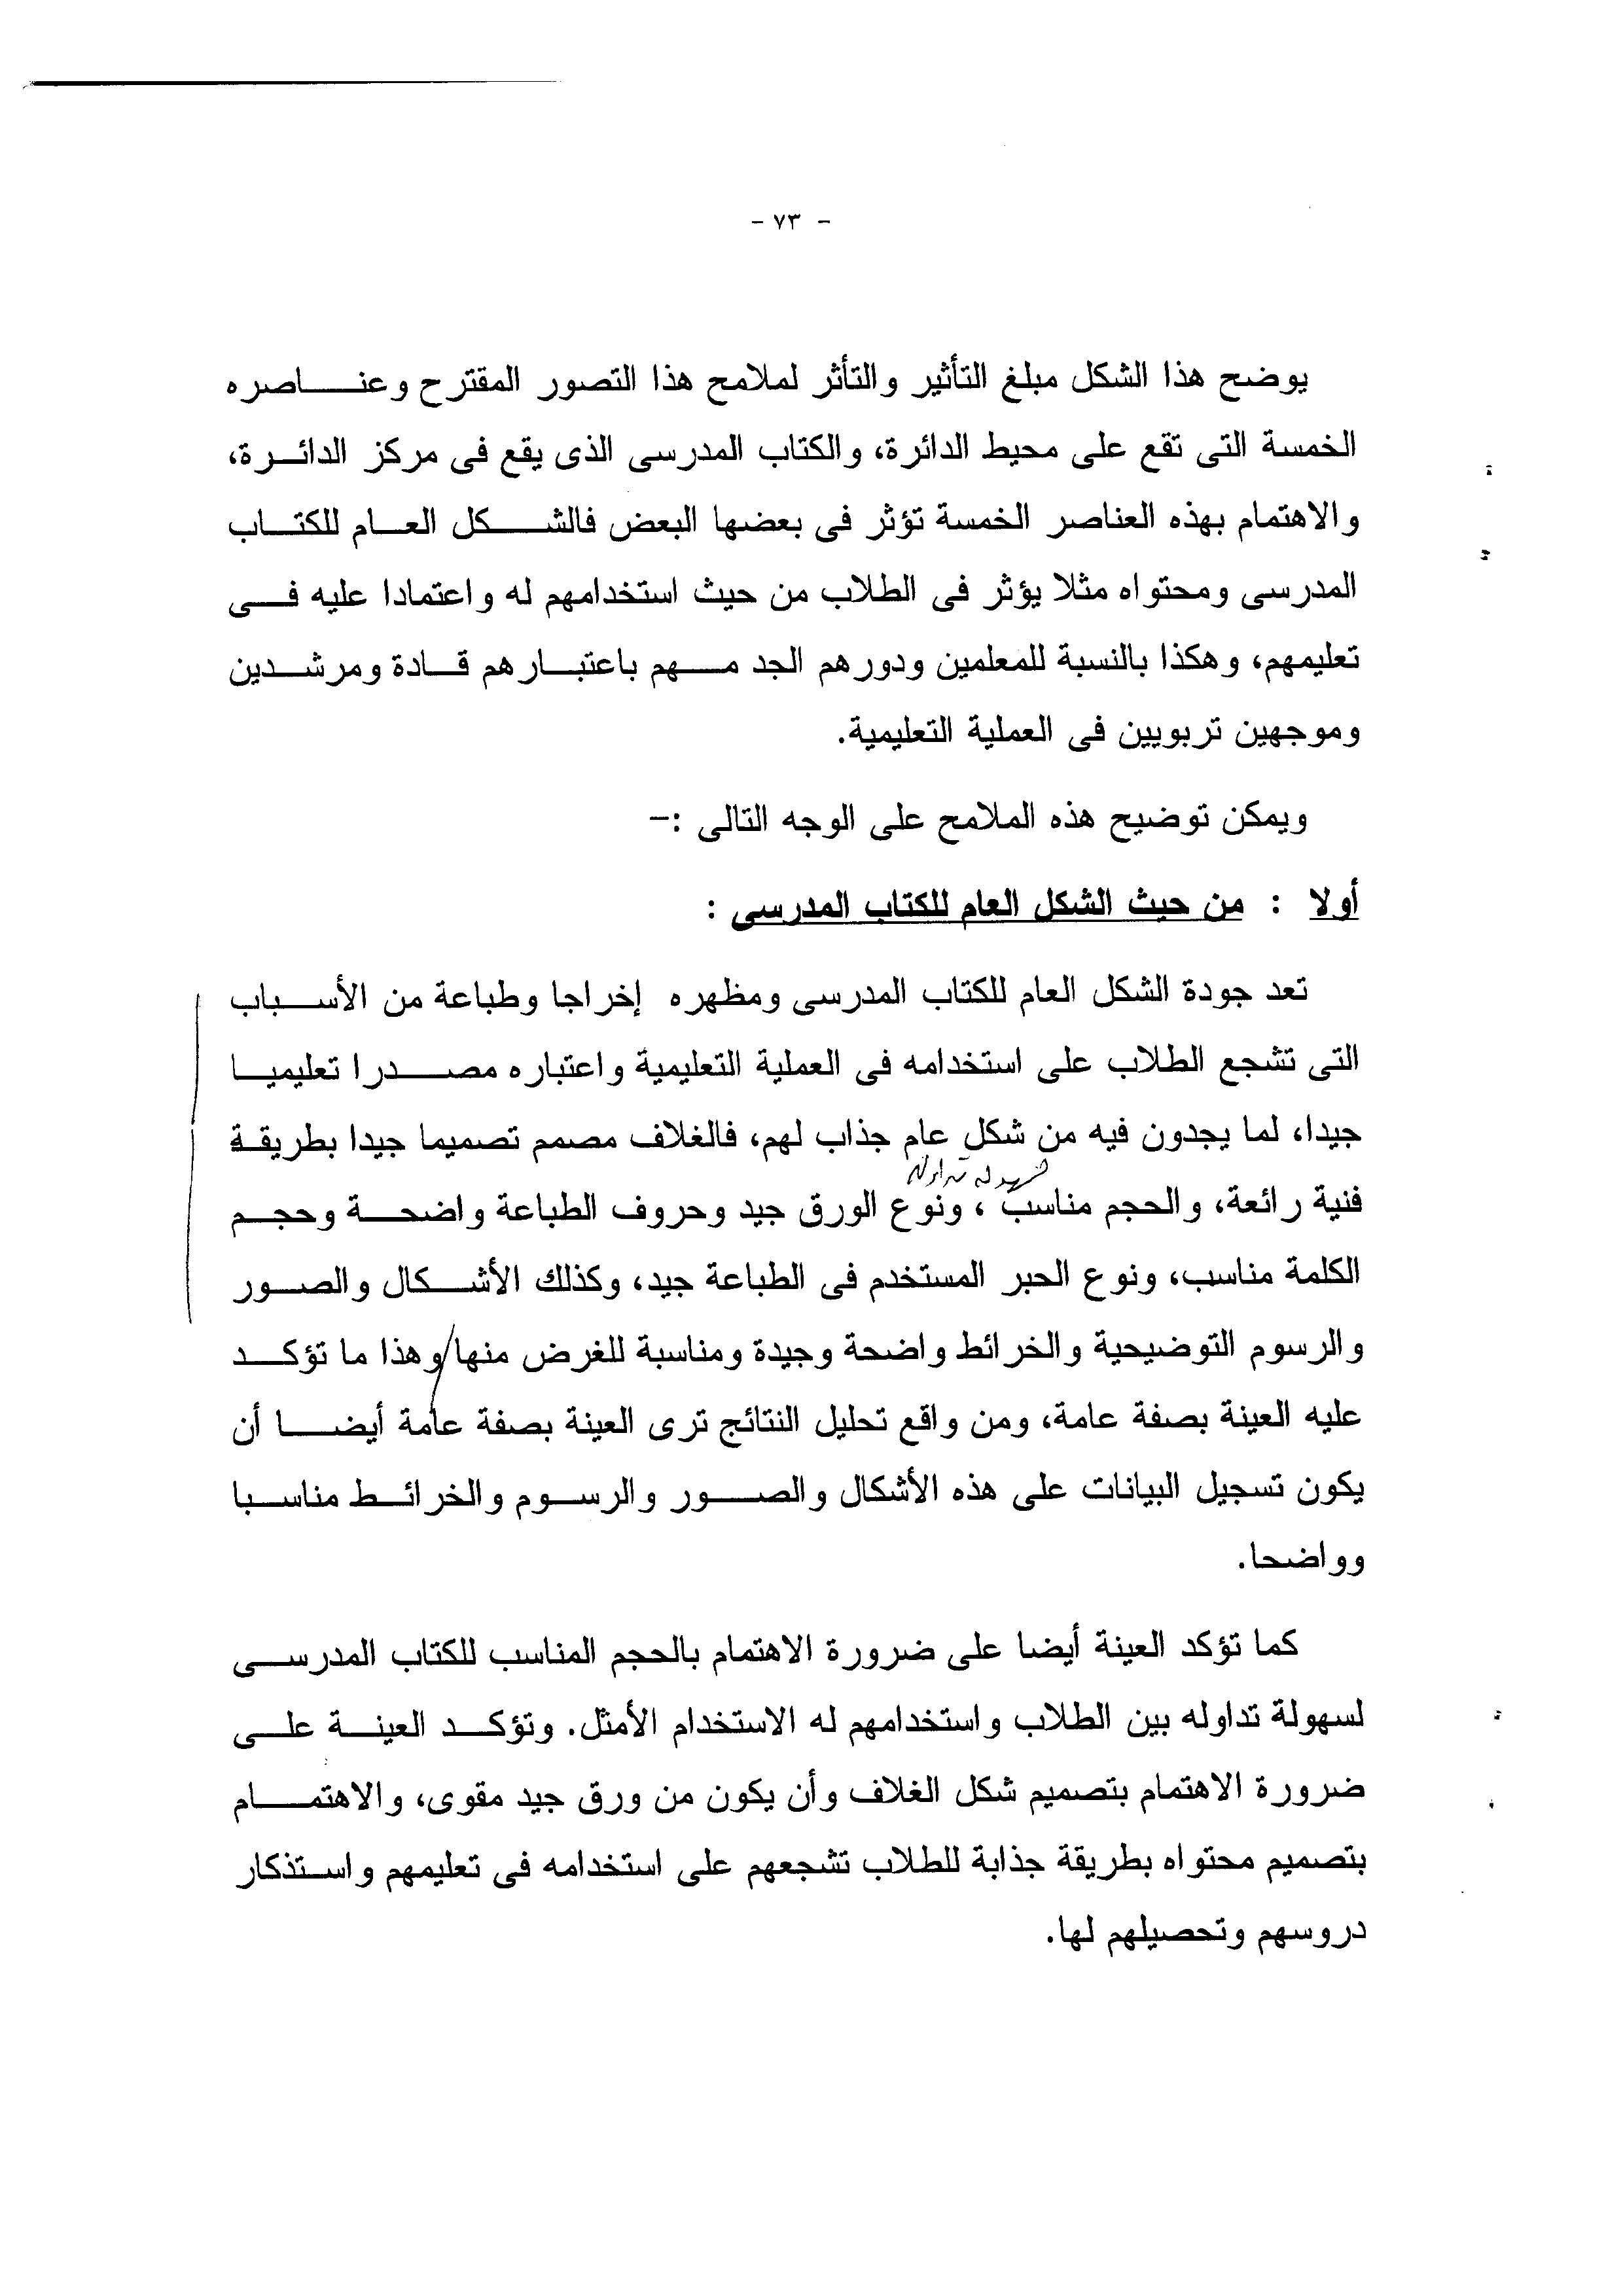 - ٧٣ -
يوضح هذا الشكل مبلغ التأثير والتأثر لملامح هذا التصور المقترح وعناصره
الخمسة التى تقع على محيط الدائرة، والكتاب المدرسى الذى يقع فى مركز الدائرة،
والاهتمام بهذه العناصر الخمسة تؤثر فى بعضها البعض فالشكل العام للكتاب
المدرسى ومحتواه مثلا يؤثر فى الطلاب من حيث استخدامهم له واعتمادا عليه فى
تعليمهم، وهكذا بالنسبة للمعلمين ودورهم الجد مهم باعتبارهم قادة ومرشدين
وموجهين تربويين فى العملية التعليمية.
ويمكن توضيح هذه الملامح على الوجه التالى :-
أولا : من حيث الشكل العام للكتاب المدرسى :
تعد جودة الشكل العام للكتاب المدرسى ومظهره إخراجا وطباعة من الأسباب
التى تشجع الطلاب على استخدامه فى العملية التعليمية واعتباره مصدرا تعليميا
جيدا، لما يجدون فيه من شكل عام جذاب لهم، فالغلاف مصمم تصميما جيدا بطريقة
لسهولة تداوله
فنية رائعة، والحجم مناسب ، ونوع الورق جيد وحروف الطباعة واضحة وحجم
الكلمة مناسب، ونوع الحبر المستخدم فى الطباعة جيد، وكذلك الأشكال والصور
والرسوم التوضيحية والخرائط واضحة وجيدة ومناسبة للغرض منها/وهذا ما تؤكد
عليه العينة بصفة عامة، ومن واقع تحليل النتائج ترى العينة بصفة عامة أيضا أن
يكون تسجيل البيانات على هذه الأشكال والصور والرسوم والخرائط مناسبا
وواضحا.
كما تؤكد العينة أيضا على ضرورة الاهتمام بالحجم المناسب للكتاب المدرسى
لسهولة تداوله بين الطلاب واستخدامهم له الاستخدام الأمثل. وتؤكد العينة على
ضرورة الاهتمام بتصميم شكل الغلاف وأن يكون من ورق جيد مقوى، والاهتمام
بتصميم محتواه بطريقة جذابة للطلاب تشجعهم على استخدامه فى تعليمهم واستذكار
دروسهم وتحصيلهم لها.